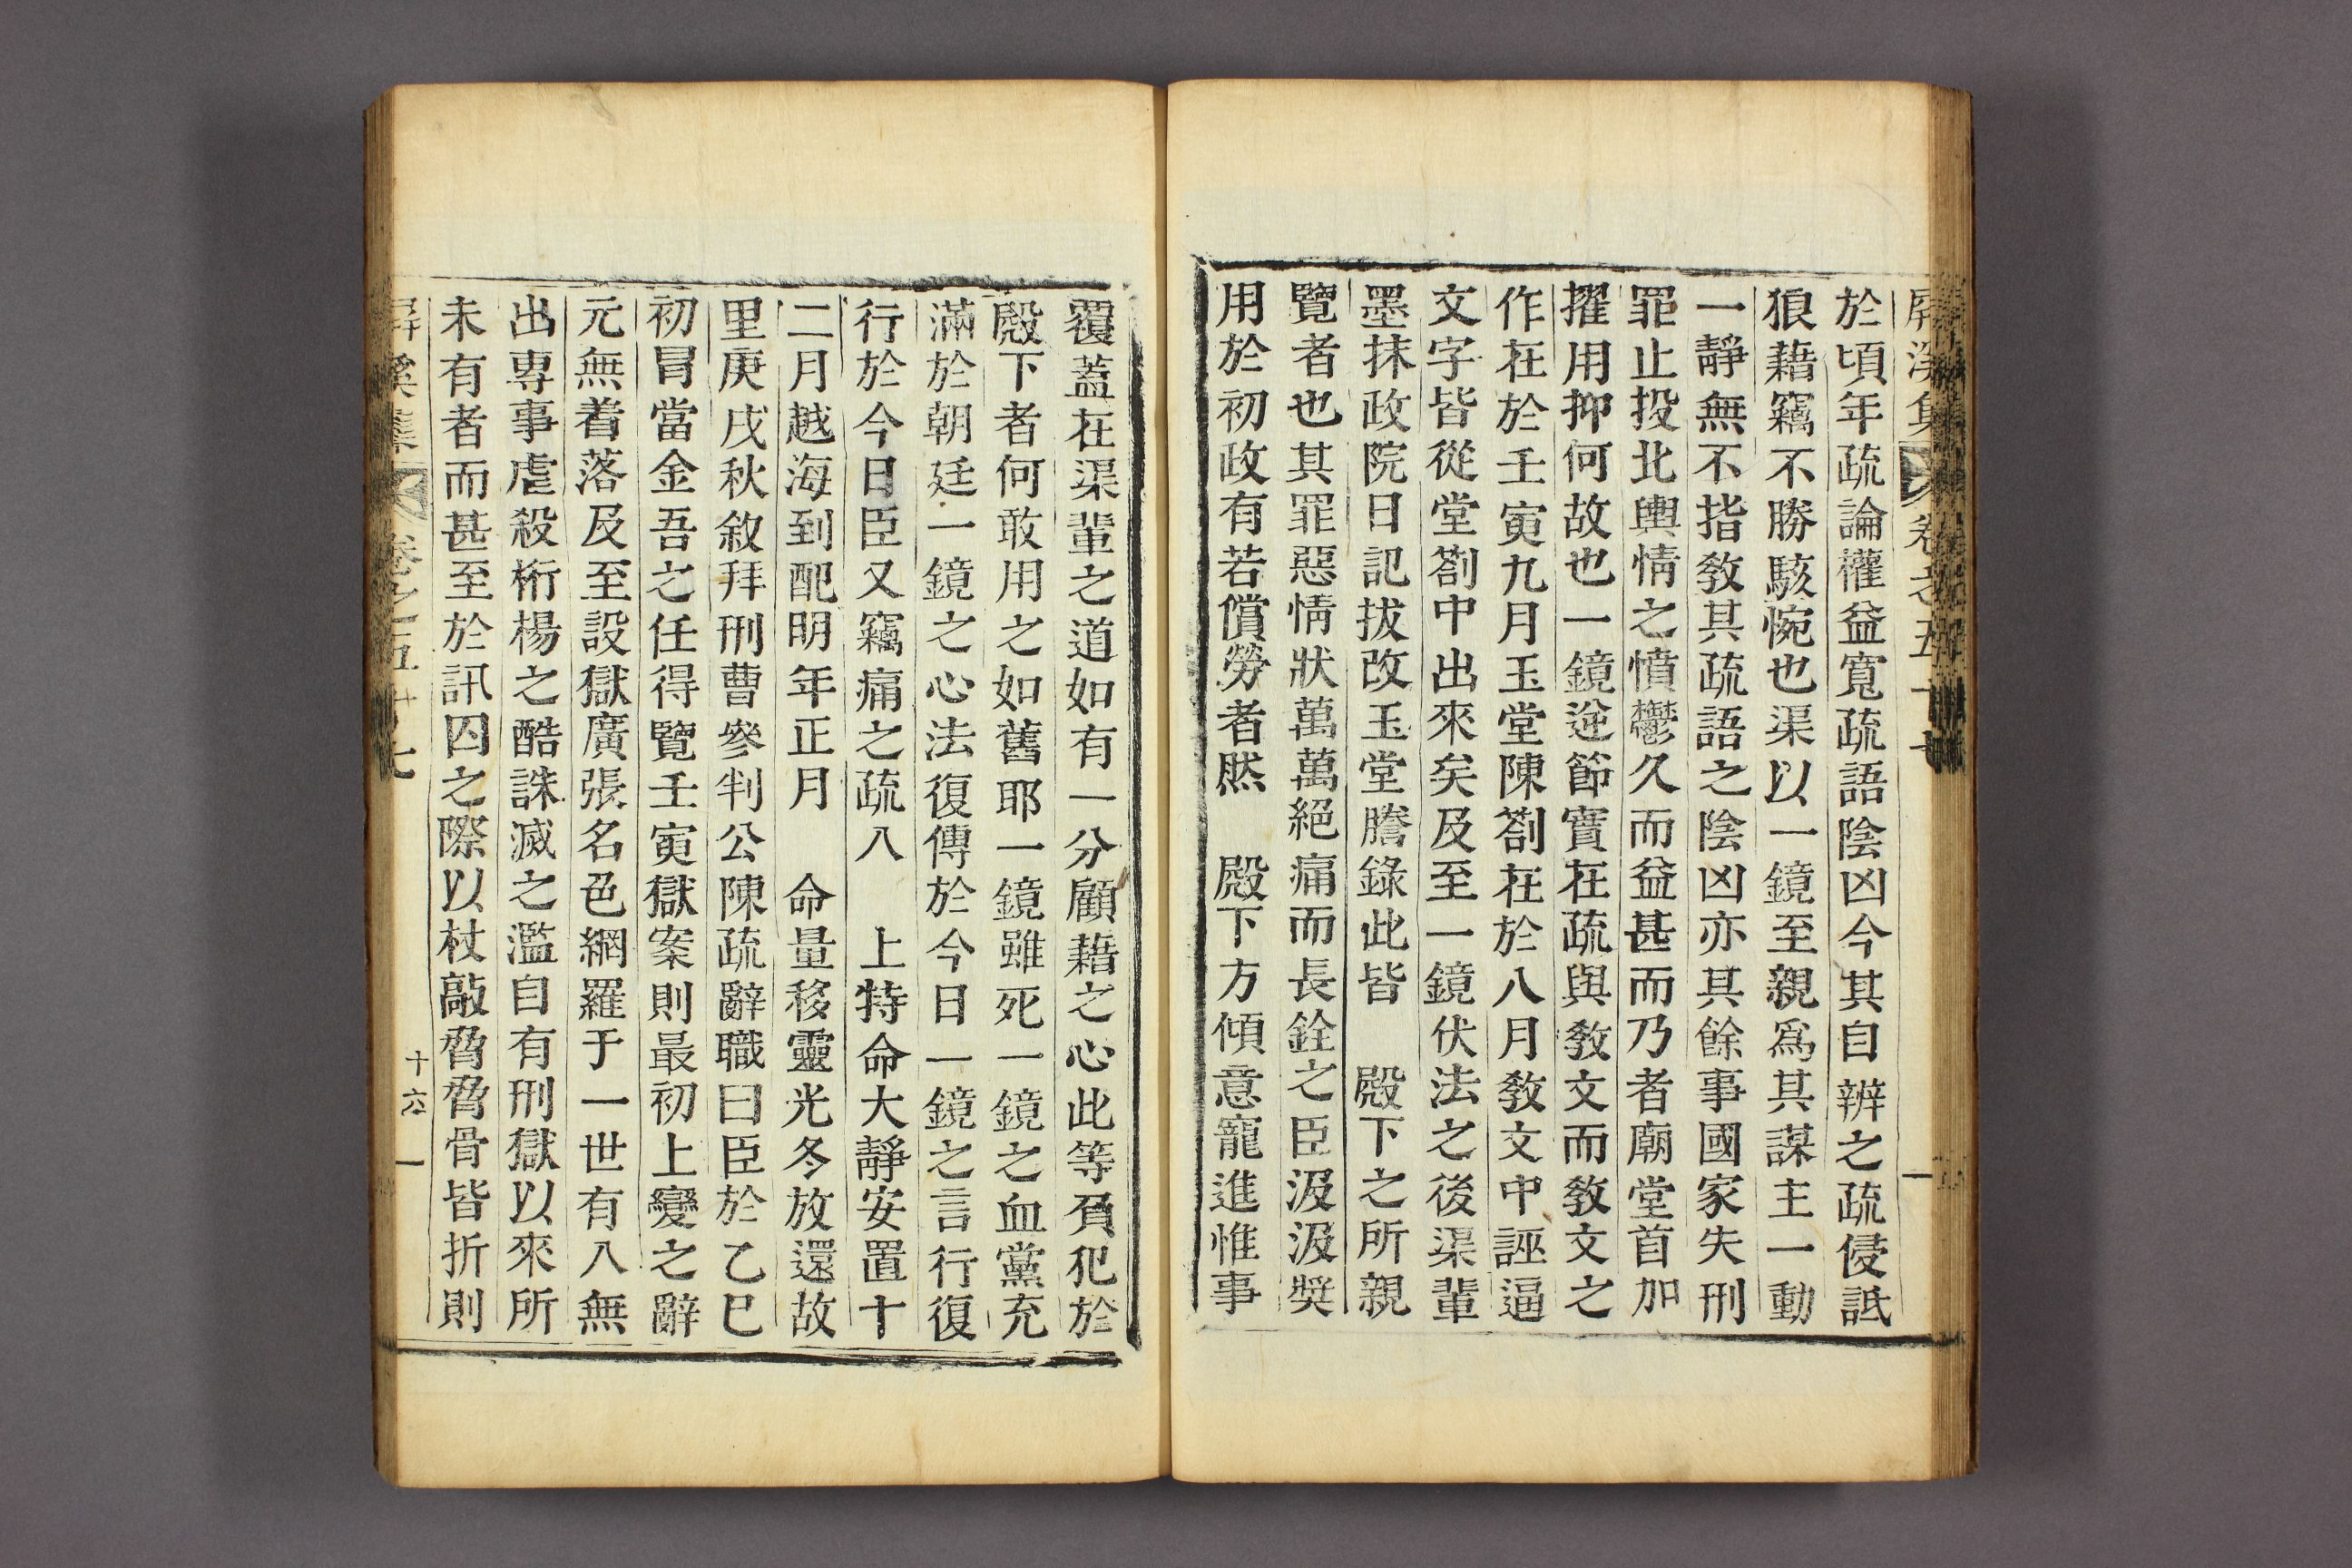 屛溪集 卷之五十七
於頃年疏論權益寬疏語陰凶今其自辨之疏侵詆
狼藉竊不勝駭惋也渠以一鏡至親爲其謀主一動
一靜無不指敎其疏語之陰凶亦其餘事國家失刑
罪止投北輿情之憤鬱久而益甚而乃者廟堂首加
擢用抑何故也一鏡逆節實在疏與敎文而敎文之
作在於壬寅九月玉堂陳劄在於八月敎文中誣逼
文字皆從堂劄中出來矣及至一鏡伏法之後渠輩
墨抹政院日記拔改玉堂謄錄此皆 殿下之所親
覽者也其罪惡情狀萬萬絕痛而長銓之臣汲汲奬
用於初政有若償勞者然 殿下方傾意寵進惟事
覆蓋在渠輩之道如有一分顧藉之心此等負犯於
殿下者何敢用之如舊耶一鏡雖死一鏡之血黨充
滿於朝廷一鏡之心法復傳於今日一鏡之言行復
行於今日臣又竊痛之疏入 上特命大靜安置十
二月越海到配明年正月 命量移靈光冬放還故
里庚戌秋敘拜刑曹參判公陳疏辭職曰臣於乙巳
初冒當金吾之任得覽壬寅獄案則最初上變之辭
元無着落及至設獄廣張名色網羅于一世有入無
出專事虐殺桁楊之酷誅滅之濫自有刑獄以來所
未有者而甚至於訊囚之際以杖敲脅脅骨皆折則
屛溪集 卷之五十七 十六